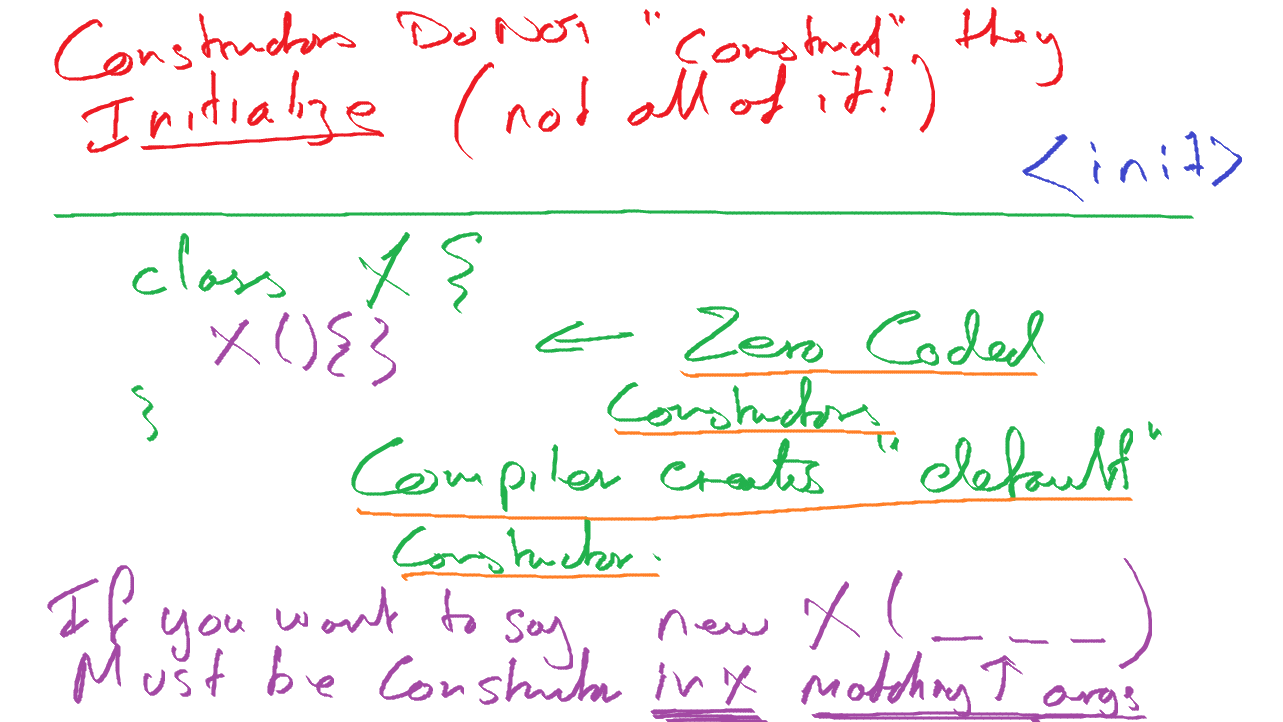 Constructors DO NOT "construct", they
Initialize (not all of it!)
<init>
class X {
X(){} ← Zero Coded
} Constructors.
Compiler creates "default"
Constructor.
If you want to say new X(_ _ _)
Must be Constructor in X matching ↑ args